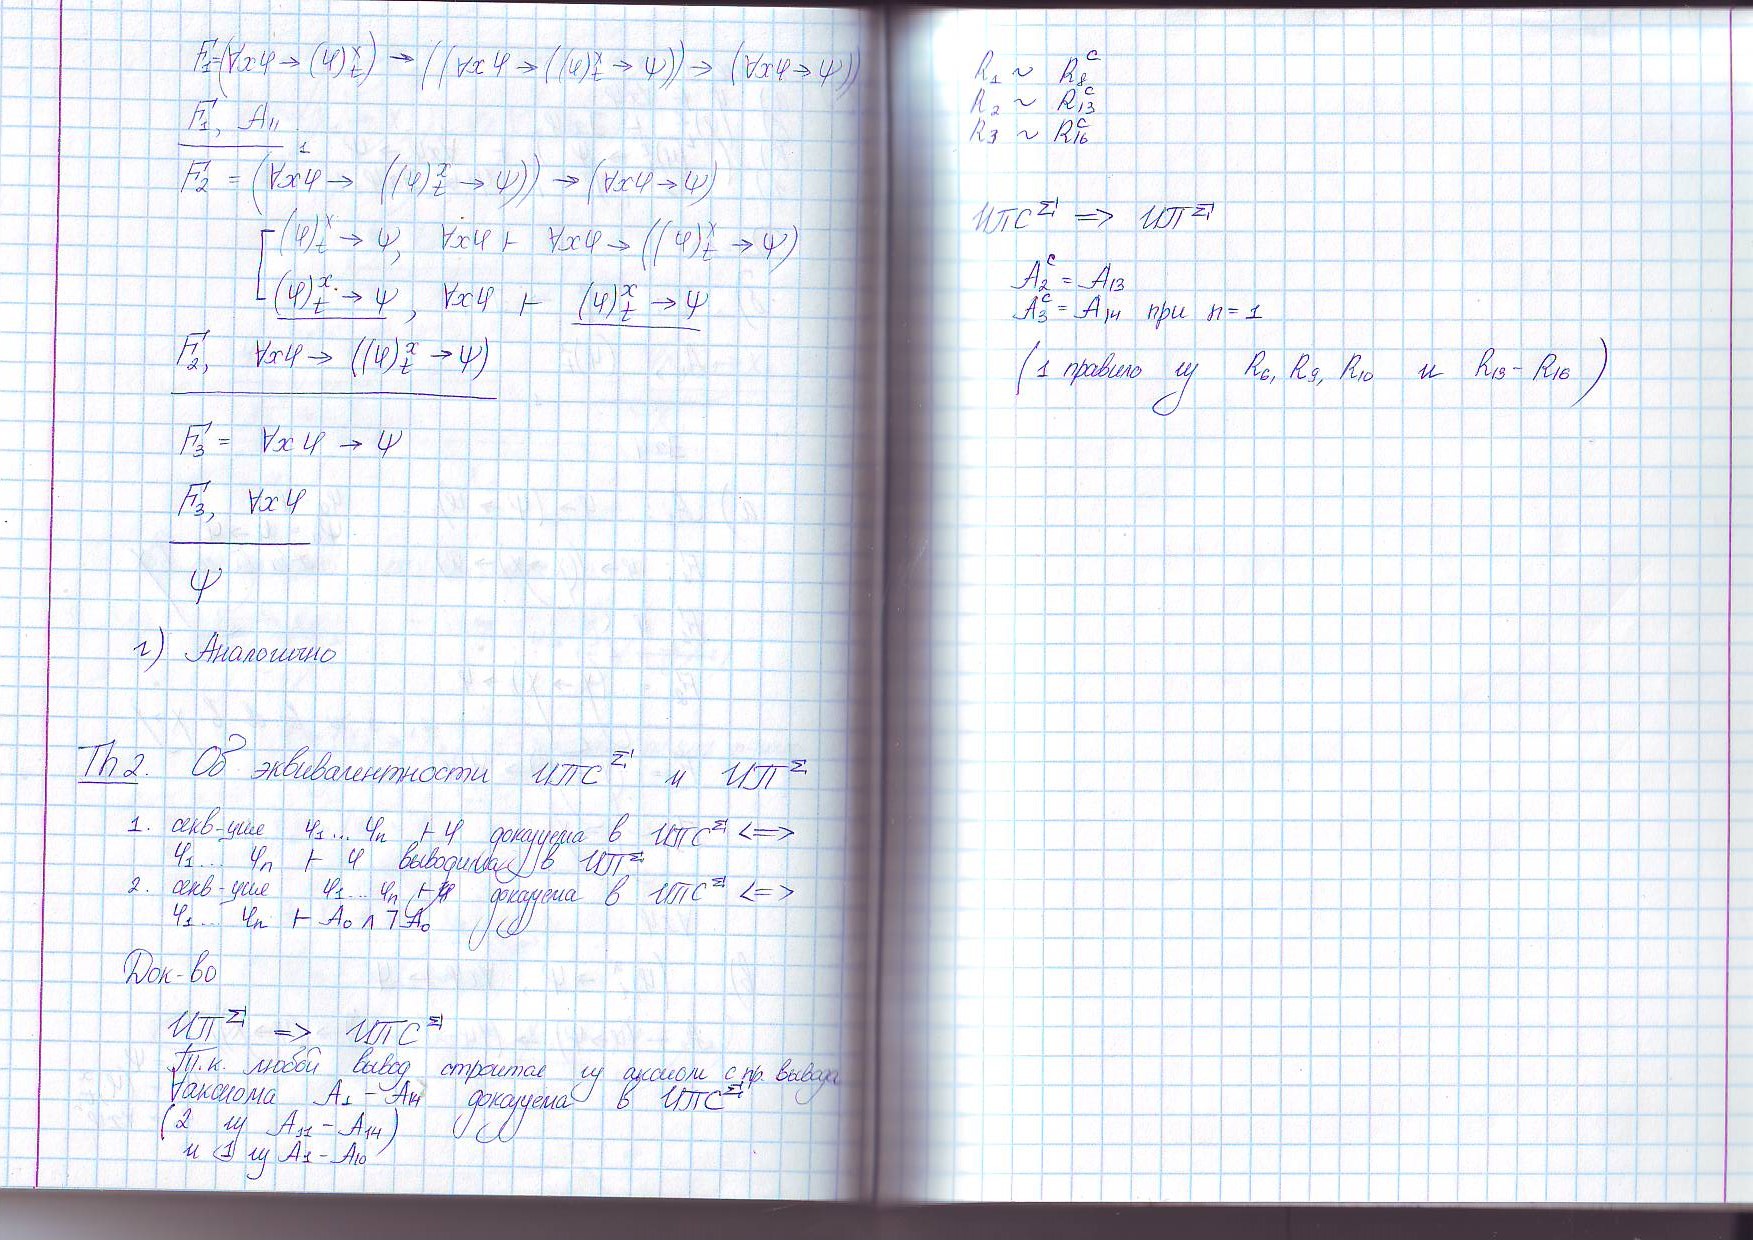 F₁=(∀xφ→(φ)ˣₜ)→((∀xφ→((φ)ˣₜ→ψ))→(∀xφ→ψ))
F₁, A₁₁
1
F₂ = (∀xφ→((φ)ˣₜ→ψ))→(∀xφ→ψ)
(φ)ˣₜ→ψ, ∀xφ ⊢ ∀xφ→((φ)ˣₜ→ψ)
(φ)ˣₜ→ψ, ∀xφ ⊢ (φ)ˣₜ→ψ
F₂, ∀xφ→((φ)ˣₜ→ψ)
F₃= ∀xφ→ψ
F₃, ∀xφ
ψ
г) Аналогично
Th 2. Об эквивалентности ИПС^Σ и ИП^Σ
1. секв-ция φ₁... φₙ ⊢ φ доказуема в ИПС^Σ <=>
φ₁... φₙ ⊢ φ выводима в ИП^Σ
2. секв-ция φ₁... φₙ ⊢ доказуема в ИПС^Σ <=>
φ₁... φₙ ⊢ A₀ ∧ ¬A₀
Док-во
ИП^Σ => ИПС^Σ
Т.к. любой вывод строится из аксиом с пр. вывода
∀ аксиома A₁ – A₁₄ доказуема в ИПС^Σ
(2 из A₁₁ – A₁₄)
и 1 из A₁ – A₁₀
R₁ ~ R₈ᶜ
R₂ ~ R₁₃ᶜ
R₃ ~ R₁₆ᶜ
ИПС^Σ => ИП^Σ
A₂ᶜ = A₁₃
A₃ᶜ = A₁₄ при n = 1
(1 правило из R₆, R₉, R₁₀ и R₁₃ – R₁₆)